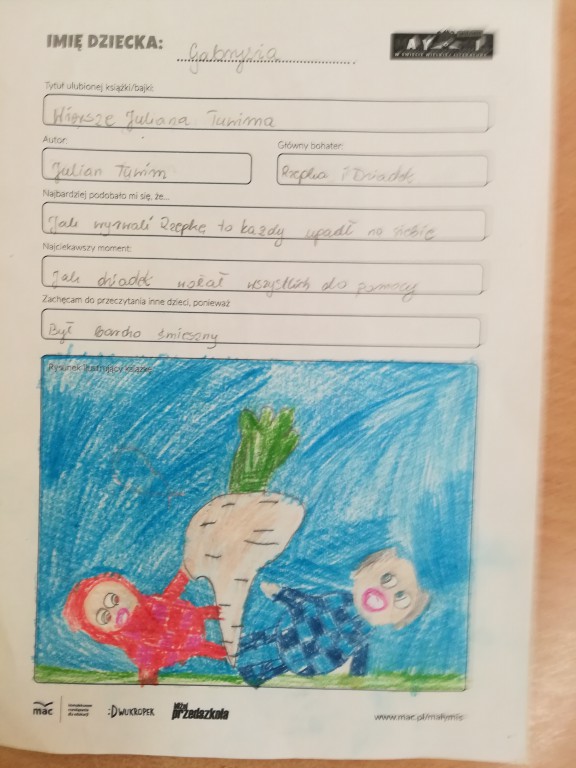 IMIĘ DZIECKA: Gabrysia
Tytuł ulubionej książki/bajki:
Wiersze Juliana Tuwima
Autor:
Julian Tuwim
Główny bohater:
Rzepka i Dziadek
Najbardziej podobało mi się, że...
Jak wyrwali Rzepkę to każdy upadł na siebie
Najciekawszy moment:
Jak dziadek wołał wszystkich do pomocy
Zachęcam do przeczytania inne dzieci, ponieważ
Był bardzo śmieszny
Rysunek ilustrujący książkę
mac
:DWUKROPEK
przedszkola
www.mac.pl/malymis